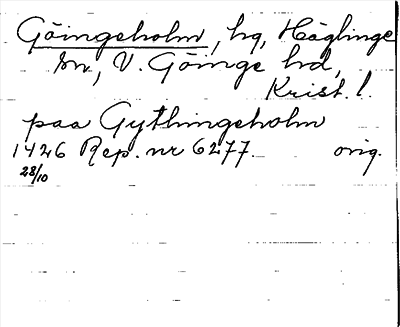 Göingeholm, hg, Häglinge
sn, V. Göinge hd,
Krist. l.
paa Gythingeholm
1426 Rep. nr 6277. orig.
28/10